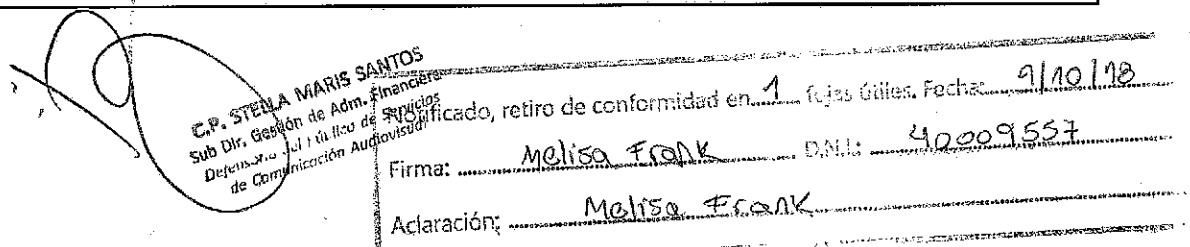 C.P. STELLA MARIS SANTOS
Sub Dir. Gestión de Adm. Financiera
Defensoría del Público de Servicios
de Comunicación Audiovisual
Notificado, retiro de conformidad en 1 fojas útiles. Fecha: 9/10/18
Firma: Melisa Frank D.N.I.: 40009557
Aclaración: Melisa Frank